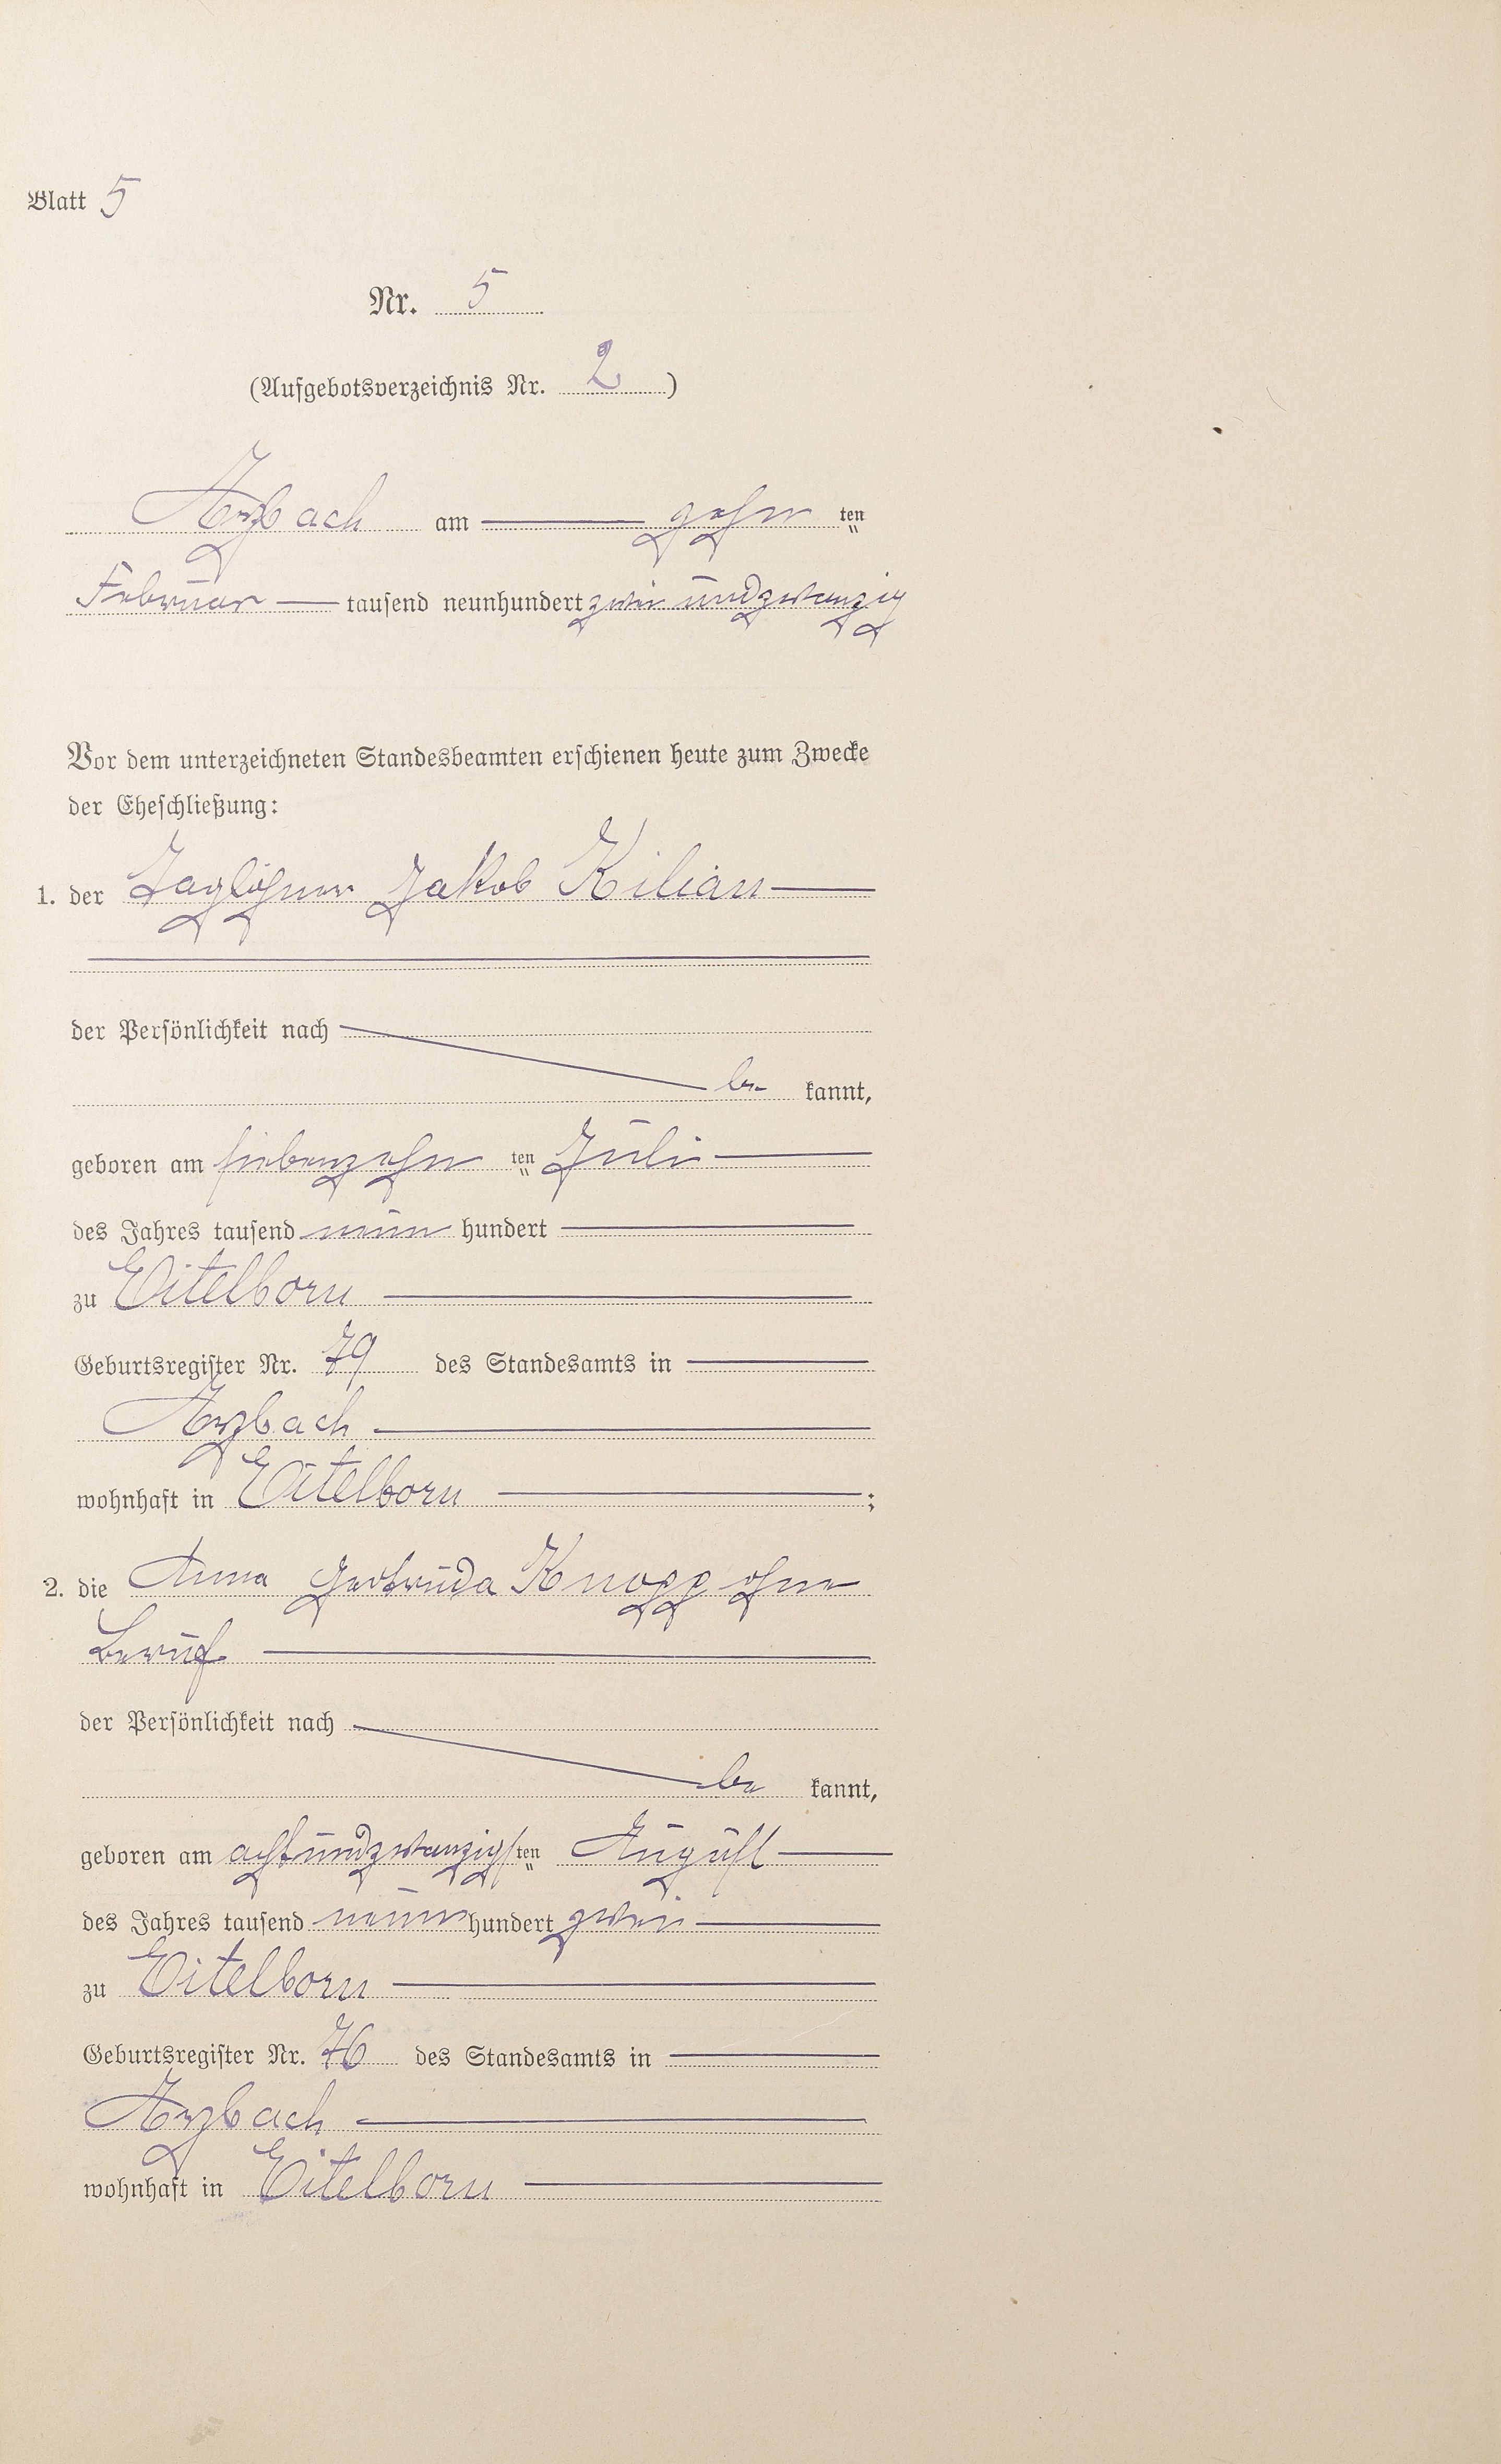 Blatt 5
Nr. 5
(Aufgebotsverzeichnis Nr. 2)
Arzbach am zehn ten
Februar tausend neunhundert zwei undzwanzig
Vor dem unterzeichneten Standesbeamten erschienen heute zum Zwecke
der Eheschließung:
1. der Taglöhner Jakob Kilian
der Persönlichkeit nach
be kannt,
geboren am siebenzehn ten Juli
des Jahres tausend neun hundert
zu Eitelborn
Geburtsregister Nr. 79 des Standesamts in
Arzbach
wohnhaft in Eitelborn ;
2. die Anna Gertruda Knopp ohne
Beruf
der Persönlichkeit nach
be kannt,
geboren am achtundzwanzigsten August
des Jahres tausend neun hundert zwei
zu Eitelborn
Geburtsregister Nr. 76 des Standesamts in
Arzbach
wohnhaft in Eitelborn